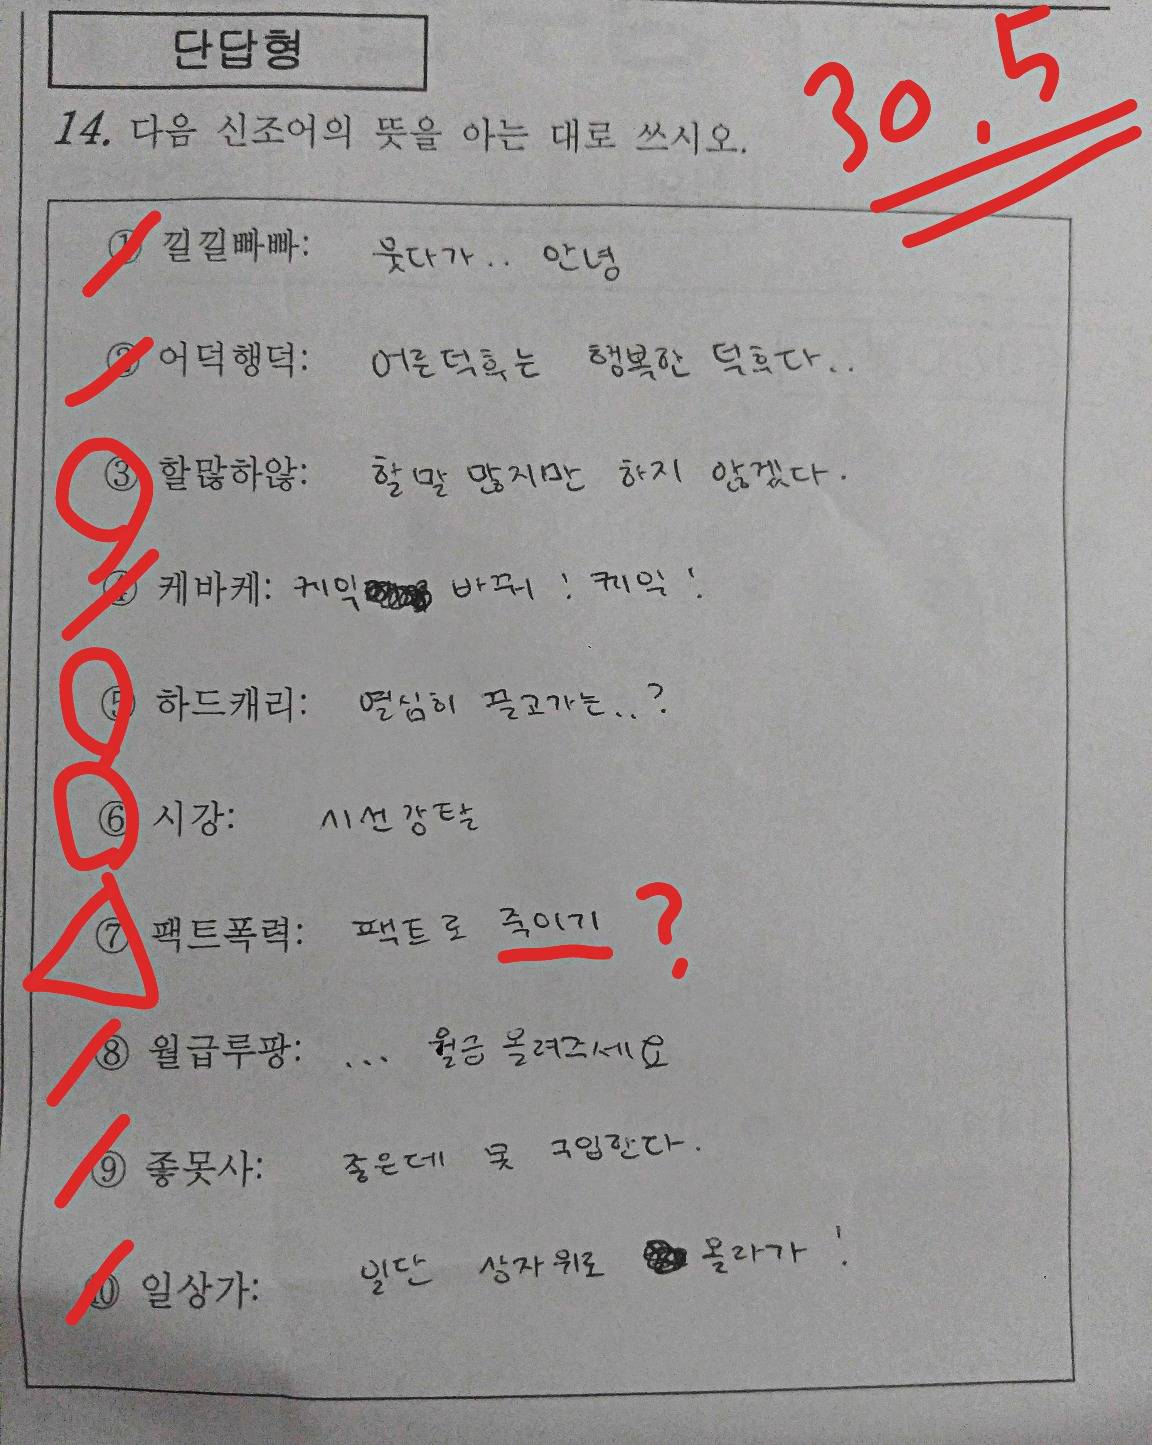 단답형
30.5
14. 다음 신조어의 뜻을 아는 대로 쓰시오.
① 낄낄빠빠: 웃다가.. 안녕
② 어덕행덕: 어른덕후는 행복한 덕후다..
③ 할많하않: 할말 많지만 하지 않겠다.
④ 케바케: 케익 바꿔! 케익!
⑤ 하드캐리: 열심히 끌고가는..?
⑥ 시강: 시선강탈
⑦ 팩트폭력: 팩트로 죽이기 ?
⑧ 월급루팡: ... 월급 올려주세요
⑨ 좋못사: 좋은데 못 구입한다.
⑩ 일상가: 일단 상자위로 올라가!